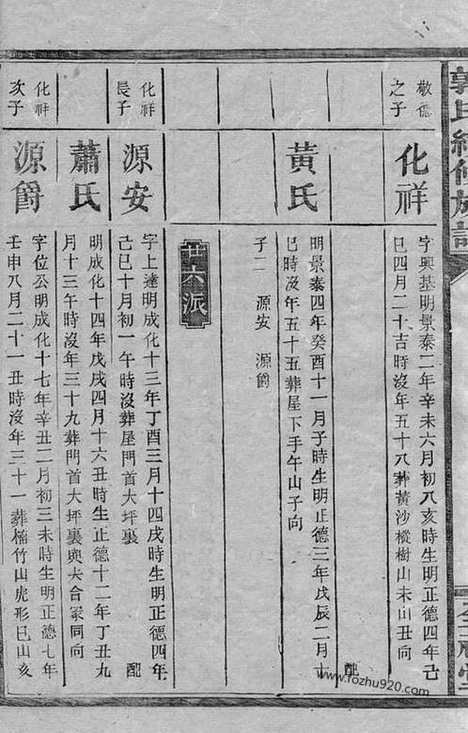 郭氏續修族譜
敬德
之子
化祥
字興基明景泰二年辛未六月初八亥時生明正德四年己
巳四月二十吉時沒年五十八葬黃沙樅樹山未山丑向
配
黃氏
明景泰四年癸酉十一月子時生明正德三年戊辰二月十
巳時沒年五十五葬屋下手午山子向
子二 源安 源爵
廿六派
化祥
長子
源安
字上達明成化十三年丁酉三月十四戌時生明正德四年
己巳十月初一午時沒葬屋門首大坪裏
配
蕭氏
明成化十四年戊戌四月十六丑時生正德十二年丁丑九
月十三午時沒年三十九葬門首大坪裏與夫合冢同向
化祥
次子
源爵
字位公明成化十七年辛丑二月初三未時生明正德七年
壬申八月二十一丑時沒年三十一葬楠竹山虎形巳山亥
www.fozhu920.com